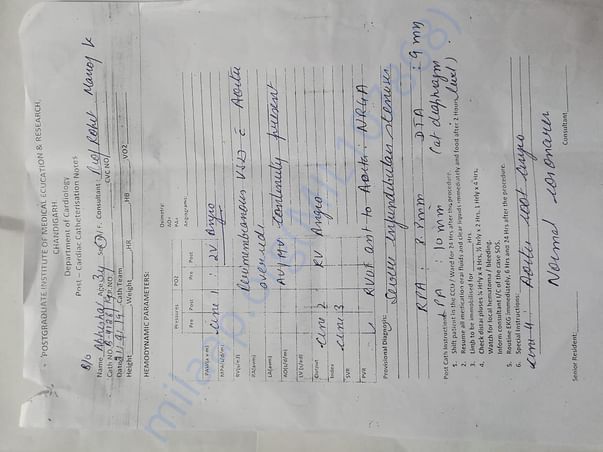 "POSTGRADUATE INSTITUTE OF MEDICAL EDUCATION & RESEARCH,
CHANDIGARH.
Department of Cardiology
Post – Cardiac Catheterisation Notes
B/o
Name Age 3y Sex F. Consultant Prof Rohit Manoj K
Cath NO. CR NO. CVC NO
Date Cath Team
Height Weight HR HB VO2
HEMODYNAMIC PARAMETERS:
Pressures PO2 Oximetry:
Pre Post Pre Post
AO=
PA=
Angiography:
cine 1: LV Angio
Perimembranous VSD c Aortic
override.
AV/MV continuity present
cine 2 RV Angio
cine 3
RVOT ant to Aorta: NRGA
PA(s)
RA(mm)
LA(mm)
Index
SVR
PVR
Provisional Diagnosis: Severe infundibular stenosis
RPA: 8.8mm DTA: 9mm
PA: 10mm (at diaphragm
level)
Post Cath Instructions:
1. Shift patient in the CCU / Ward for 24 Hrs after the procedure.
2. Resume all medication oral fluids and clear liquids immediately and food after 2 Hours
3. Limb to be immobilised for ____ Hrs.
4. Check distal pluses ¼ Hrly x 4 Hrs, ½ Hrly x 2 Hrs, 1 Hrly x 4 Hrs.
Watch for local hematoma / bleeding.
Inform consultant I/C of the case SOS.
5. Routine EKG immediately, 6 Hrs and 24 Hrs after the procedure.
6. Special Instructions:
cine 4 Aortic root angio
Normal coronaries
Senior Resident Consultant